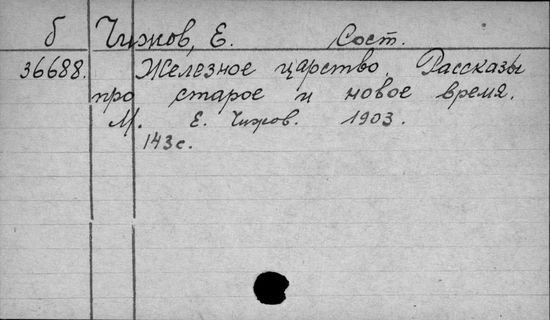 б Чижов, Е. Сост.
36688. Железное царство. Рассказы
про старое и новое время.
М. Е. Чижов. 1903.
143 с.